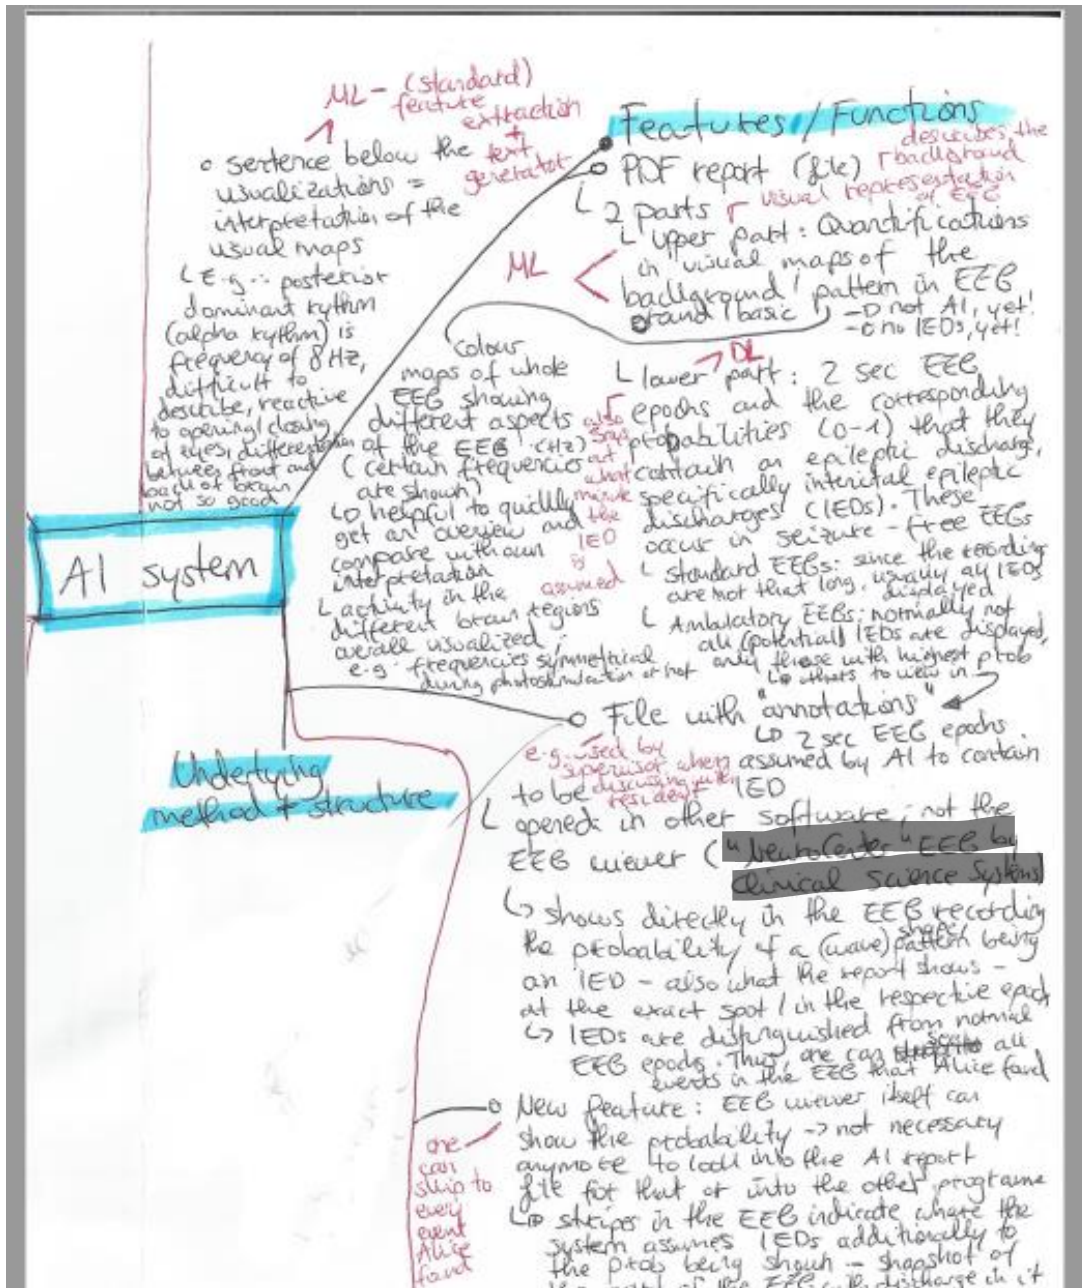 ML - (standard)
feature
extraction
+
text
generator
o sentence below the
visualizations =
interpretation of the
visual maps
E.g.: posterior
dominant rythm
(alpha rythm) is
frequency of 8 Hz,
difficult to
describe, reactive
to opening/closing
of eyes, differentiation
between front and
back of brain
not so good
Features / Functions
PDF report (file)
describes the
background
visual representation
of EEG
2 parts
upper part: Quantifications
in visual maps of the
background / pattern in EEG
ML
and / basic
not AI, yet!
no IEDs, yet!
colour
maps of whole
EEG showing
different aspects
of the EEG (Hz)
(certain frequencies
are shown)
helpful to quickly
get an overview and
compare with own
interpretation
activity in the
different brain regions
overall visualized,
e.g. frequencies symmetrical
during photostimulation or not
DL
lower part: 2 sec EEG
epochs and the corresponding
probabilities (0-1) that they
contain an epileptic discharge,
specifically interictal epileptic
discharges (IEDs). These
occur in seizure-free EEGs
also
says
at
what
minute
the
IED
is
assumed
standard EEGs: since the recording
are not that long, usually all IEDs
displayed
Ambulatory EEGs: normally not
all (potential) IEDs are displayed,
only those with highest prob
others to view in
AI system
File with "annotations"
2 sec EEG epochs
assumed by AI to contain
IED
e.g. used by
supervisor when
discussing with
resident
to be
opened: in other software, not the
EEG viewer ("NeuroCenter" EEG by
Clinical Science Systems)
shows directly in the EEG recording
the probability of a (wave) pattern being
shape/
an IED - also what the report shows -
at the exact spot / in the respective epoch
IEDs are distinguished from normal
EEG epochs. Thus, one can see all
events in the EEG that Alice found
Underlying
method + structure
New feature: EEG viewer itself can
show the probability -> not necessary
anymore to look into the AI report
file for that or into the other programme
one
can
skip to
every
event
Alice
found
stripes in the EEG indicate where the
system assumes IEDs additionally to
the prob being shown - snapshot of